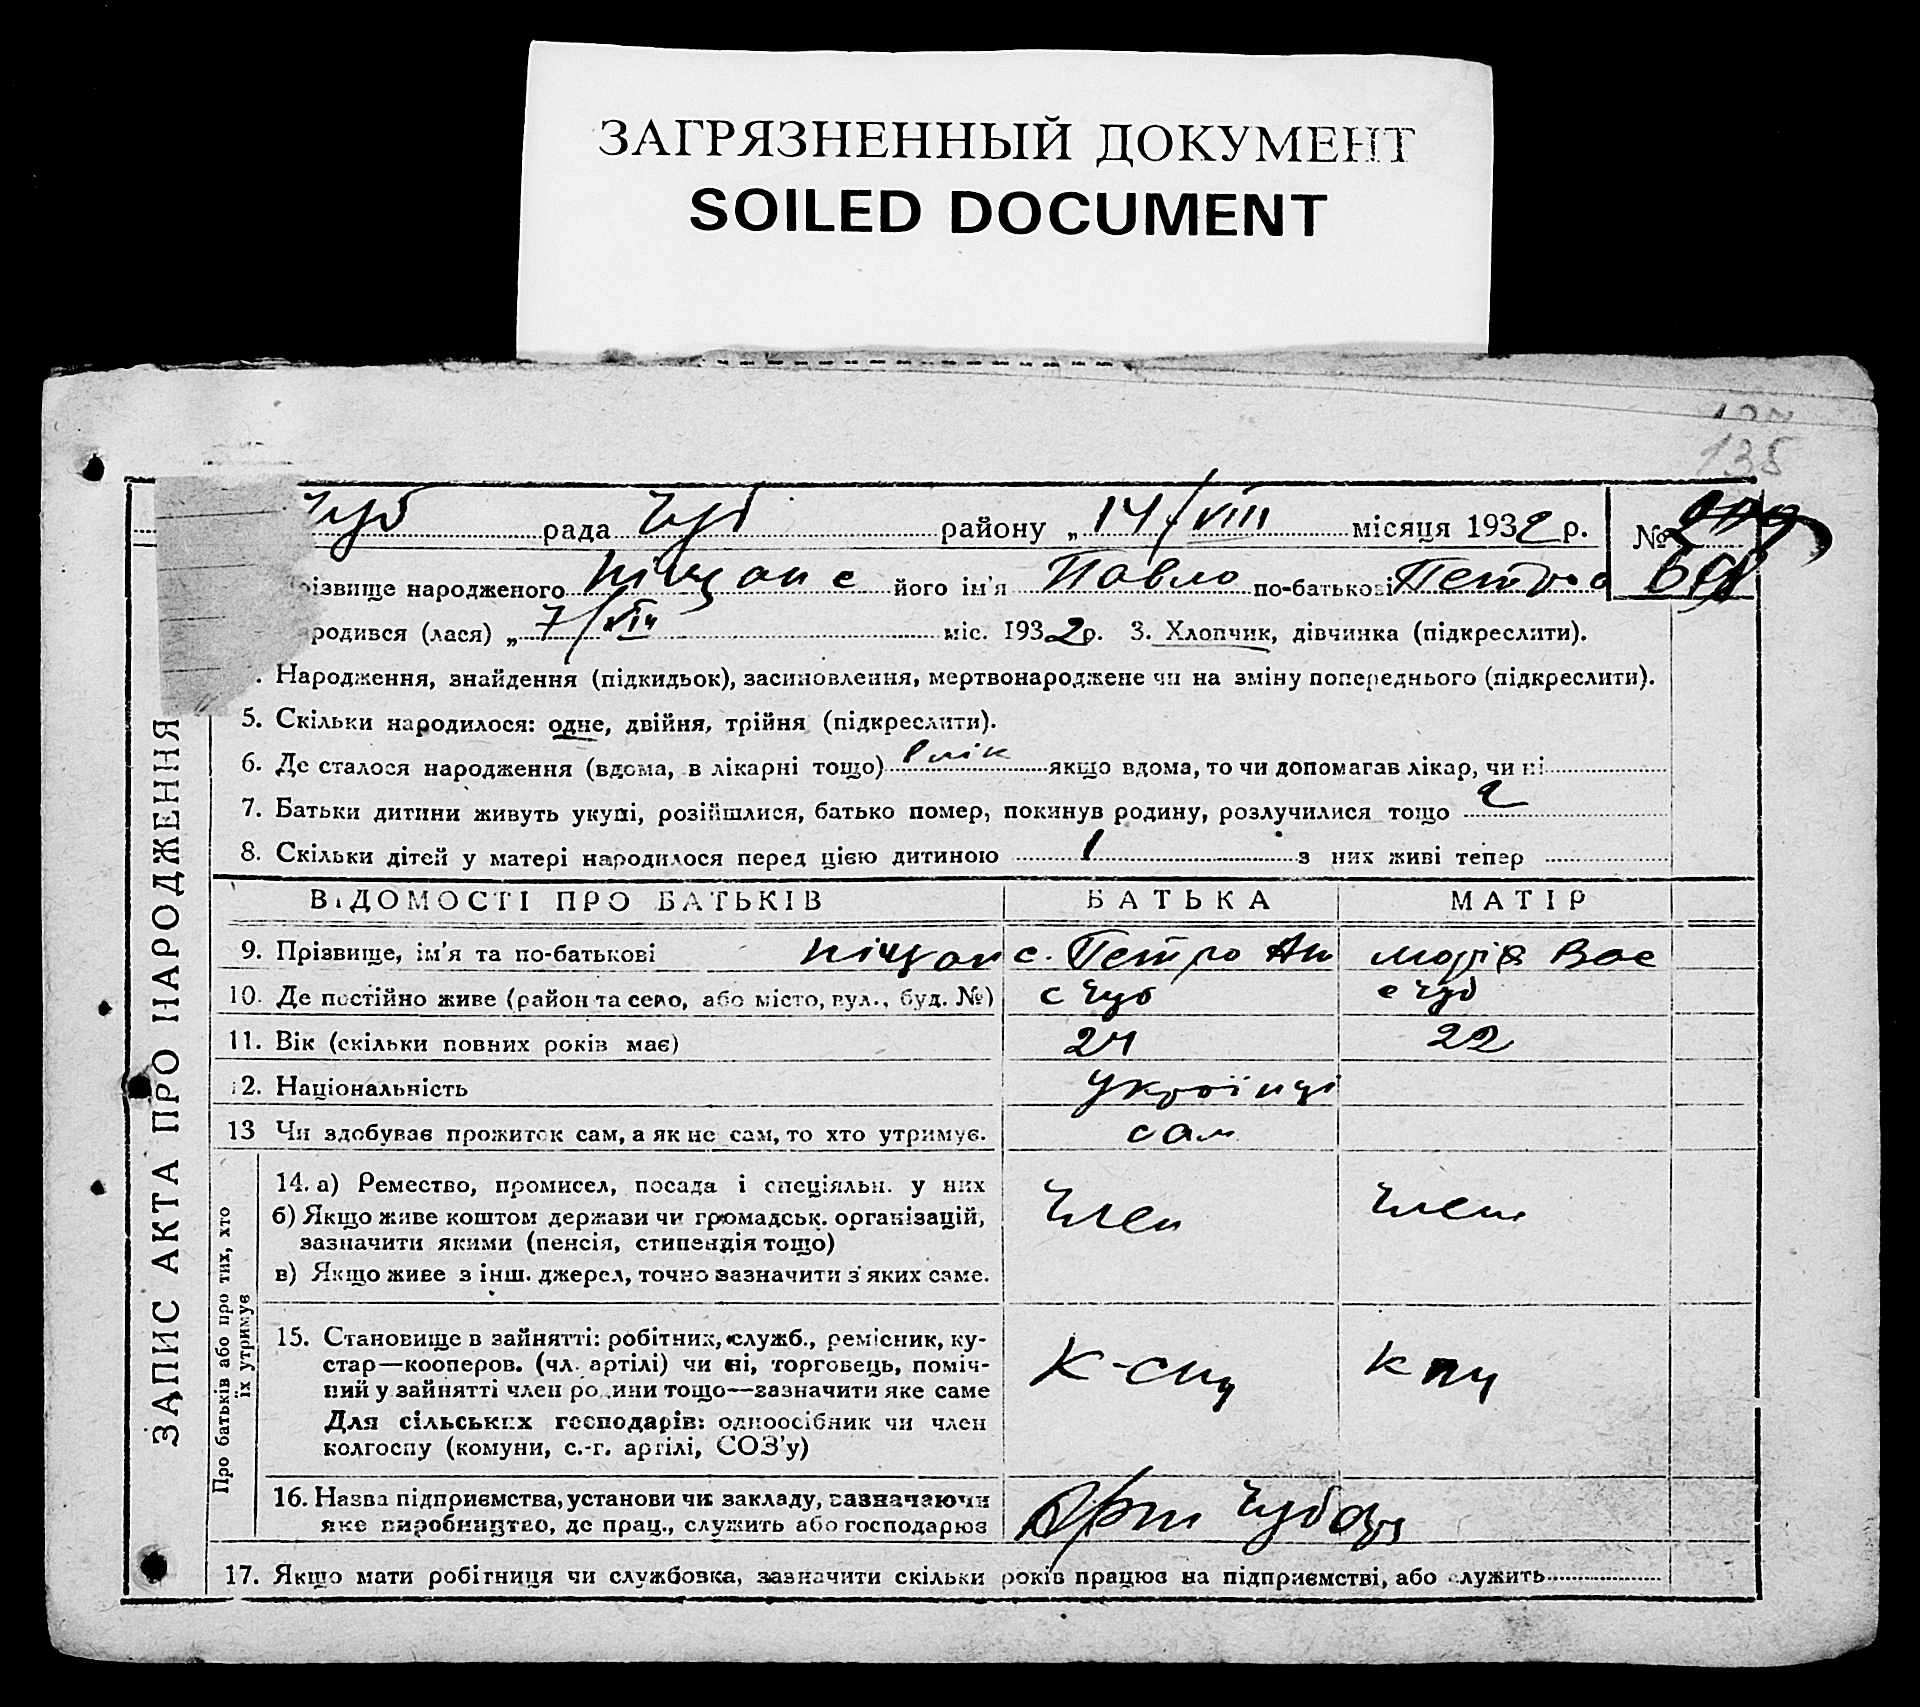 ЗАГРЯЗНЕННЫЙ ДОКУМЕНТ
SOILED DOCUMENT
135
Чуб рада Чуб району „14/VIII місяця 1932 р. №
різвище народженого його ім'я Павло по-батькові Петро
родився (лася) „7/VIII міс. 1932 р. 3. Хлопчик, дівчинка (підкреслити).
. Народження, знайдення (підкидьок), засиновлення, мертвонароджене чи на зміну попереднього (підкреслити).
5. Скільки народилося: одне, двійня, трійня (підкреслити).
6. Де сталося народження (вдома, в лікарні тощо) в лік якщо вдома, то чи допомагав лікар, чи ні
7. Батьки дитини живуть укупі, розійшлися, батько помер, покинув родину, розлучилися тощо
8. Скільки дітей у матері народилося перед цією дитиною 1 з них живі тепер
ВІДОМОСТІ ПРО БАТЬКІВ БАТЬКА МАТІР
9. Прізвище, ім'я та по-батькові Петро Ан Марія Вас
10. Де постійно живе (район та село, або місто, вул., буд. №) с Чуб с Чуб
11. Вік (скільки повних років має) 24 22
12. Національність Українці
13 Чи здобував прожиток сам, а як не сам, то хто утримує. сам
14. а) Ремество, промисел, посада і спеціяльн. у них Член Член
б) Якщо живе коштом держави чи громадськ. організацій,
зазначити якими (пенсія, стипендія тощо)
в) Якщо живе з інш. джерел, точно зазначити з яких саме.
15. Становище в зайнятті: робітник, служб., ремісник, ку-
стар—кооперов. (чл. артілі) чи ні, торговець, поміч-
ний у зайнятті член родини тощо—зазначити яке саме
Для сільських господарів: одноосібник чи член
колгоспу (комуни, с.-г. артілі, СОЗ'у)
16. Назва підприємства, установи чи закладу, зазначаючи
яке виробництво, де прац., служить або господарює
17. Якщо мати робітниця чи службовка, зазначити скільки років працює на підприємстві, або служить
ЗАПИС АКТА ПРО НАРОДЖЕННЯ
Про батьків або про тих, хто
їх утримує